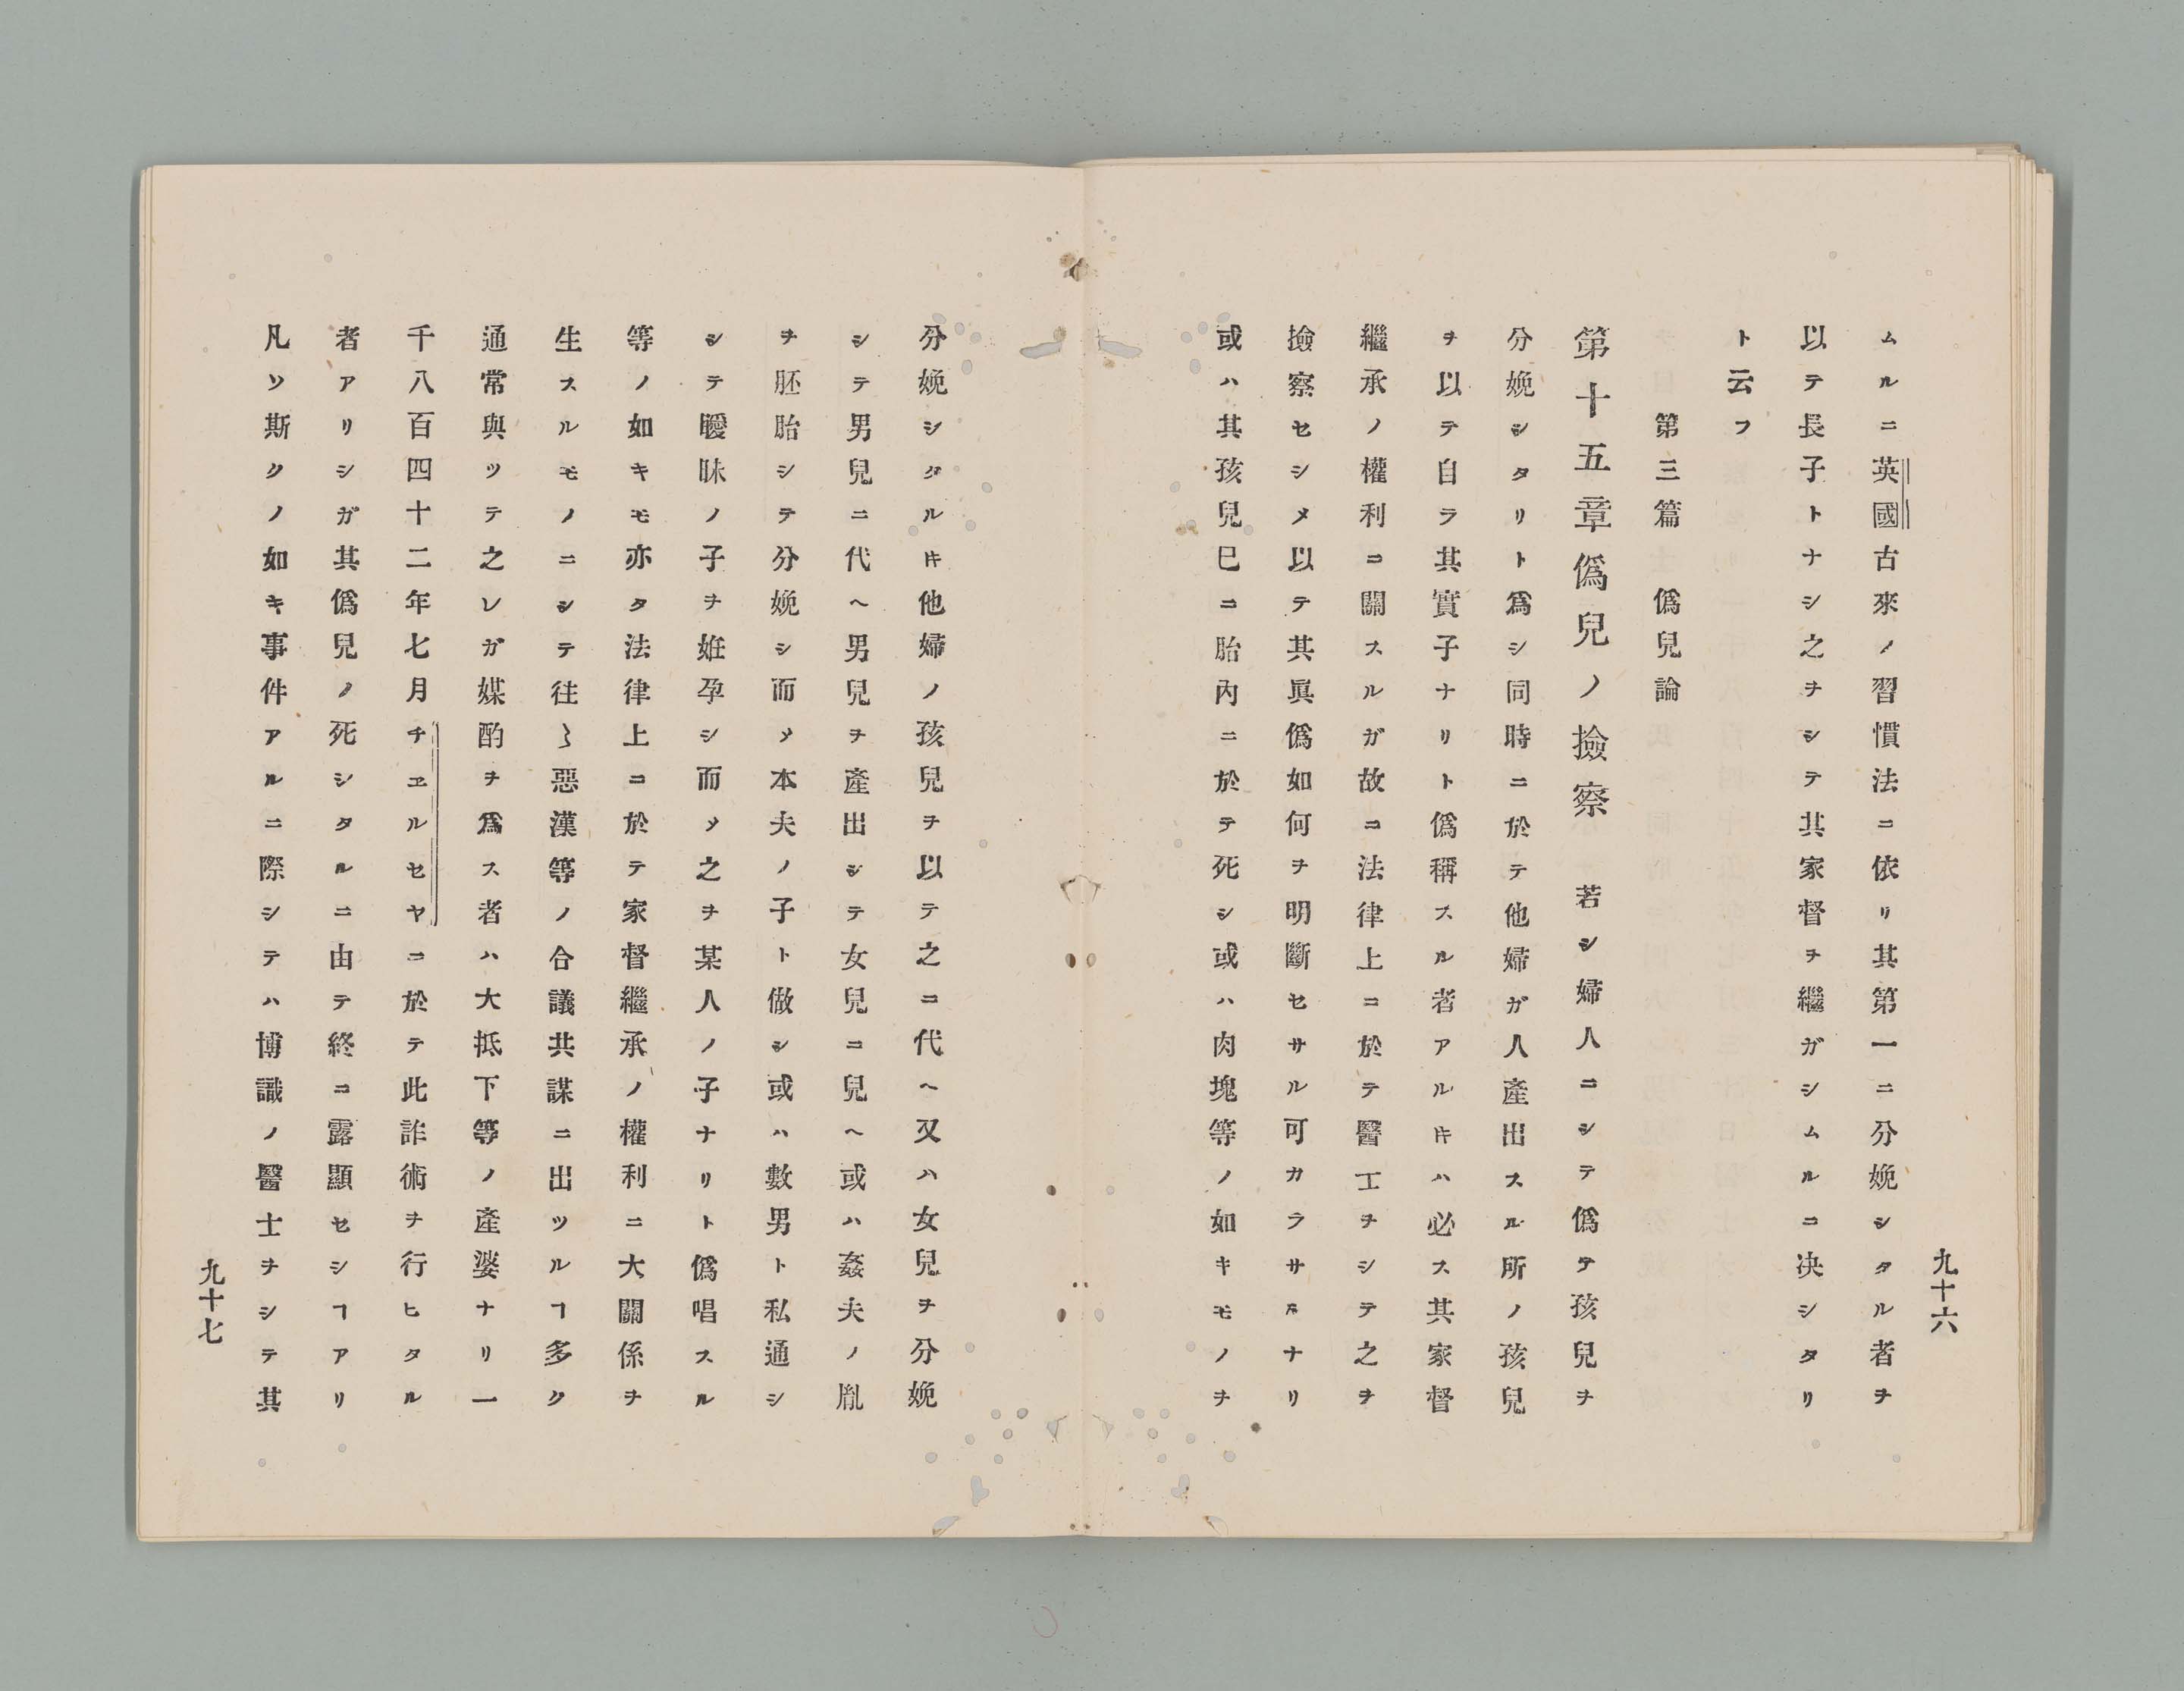 九十六
ムルニ英國古來ノ習慣法ニ依リ其第一ニ分娩シタル者ヲ
以テ長子トナシ之ヲシテ其家督ヲ繼ガシムルコ决シタリ
ト云フ
第三篇　僞兒論
第十五章僞兒ノ撿察　若シ婦人ニシテ僞テ孩兒ヲ
分娩シタリト爲シ同時ニ於テ他婦ガ人產出スル所ノ孩兒
ヲ以テ自ラ其實子ナリト僞稱スル者アルㇳキハ必ス其家督
繼承ノ權利コ關スルガ故コ法律上コ於テ醫工ヲシテ之ヲ
撿察セシメ以テ其眞僞如何ヲ明斷セサル可カラサルナリ
或ハ其孩兒巳コ胎內ニ於テ死シ或ハ肉塊等ノ如キモノヲ
分娩シタルㇳキ他婦ノ孩兒ヲ以テ之コ代ヘ又ハ女兒ヲ分娩
シテ男兒ニ代ヘ男兒ヲ產出シテ女兒コ兒ヘ或ハ姦夫ノ胤
ヲ胚胎シテ分娩シ而メ本夫ノ子ト做シ或ハ數男ト私通シ
シテ曖昧ノ子ヲ姙孕シ而メ之ヲ某人ノ子ナリト僞唱スル
等ノ如キモ亦タ法律上コ於テ家督繼承ノ權利ニ大關係ヲ
生スルモノニシテ徃〻惡漢等ノ合議共謀ニ出ツルヿ多ク
通常與ツテ之レガ媒酌ヲ爲ス者ハ大抵下等ノ產婆ナリ一
千八百四十二年七月チヱルセヤニ於テ此詐術ヲ行ヒタル
者アリシガ其僞兒ノ死シタルニ由テ終コ露顯セシヿアリ
凡ソ斯クノ如キ事件アルニ際シテハ博識ノ醫士ヲシテ其
九十七